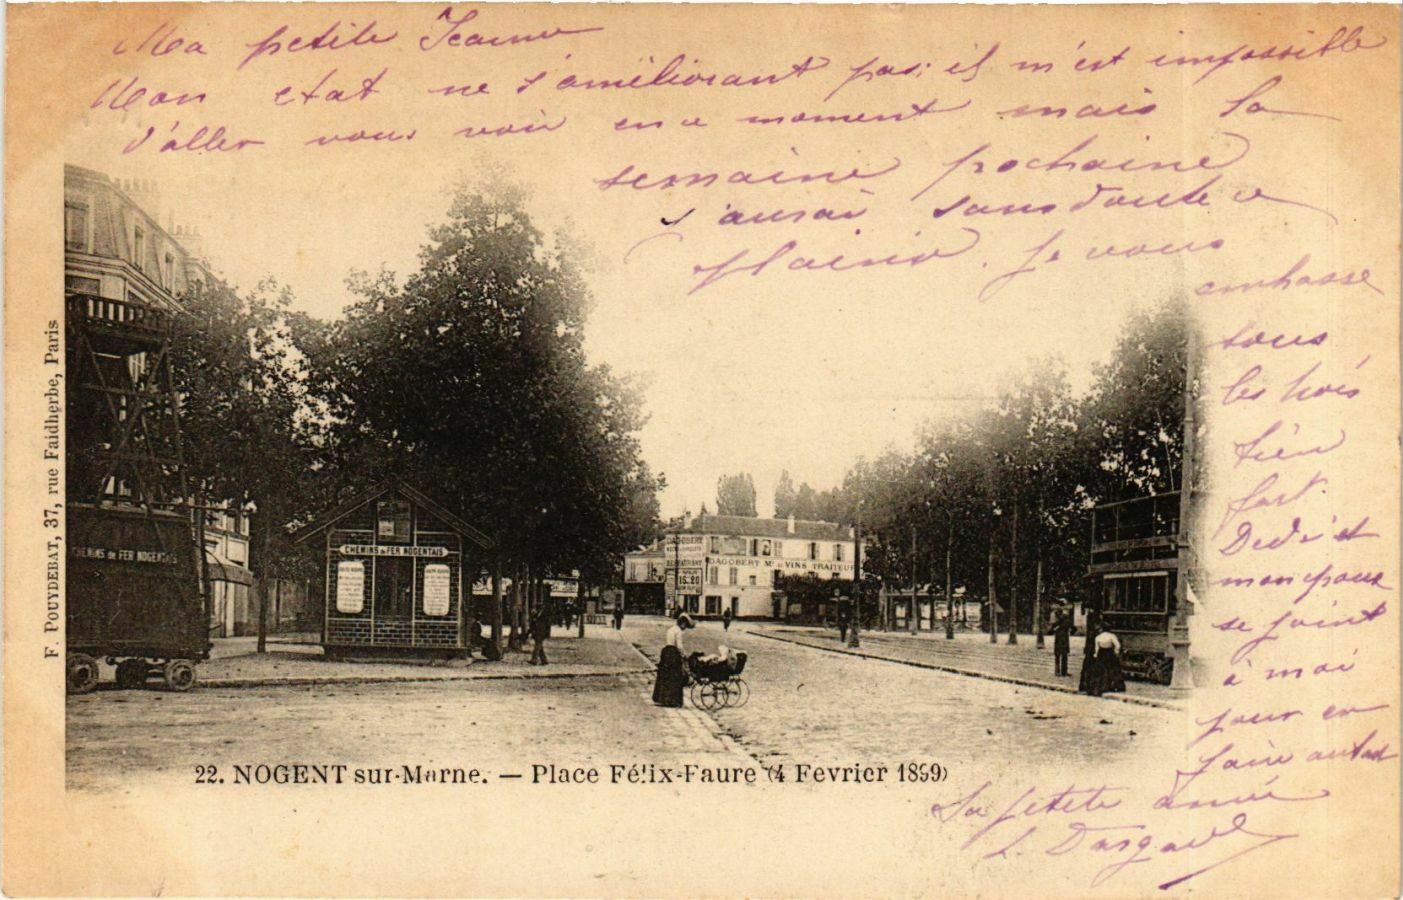 Ma petite Jeanne
Mon etat ne s'améliorant pas; il m'est impossible
d'aller vous voir en ce moment mais la
semaine prochaine
j'aurai sans doute ce
plaisir. Je vous
embrasse
tous
les trois
bien
fort.
Dédé et
mon epoux
se joint
à moi
pour en
faire autant
Ta petite amie
L
F. POUYDEBAT, 37, rue Faidherbe, Paris
CHEMINS de FER NOGENTAIS
CHEMINS de FER NOGENTAIS
DAGOBERT
RESTAURANT
DAGOBERT Md de VINS TRAITEUR
22. NOGENT sur-Marne. — Place Félix-Faure (4 Fevrier 1899)